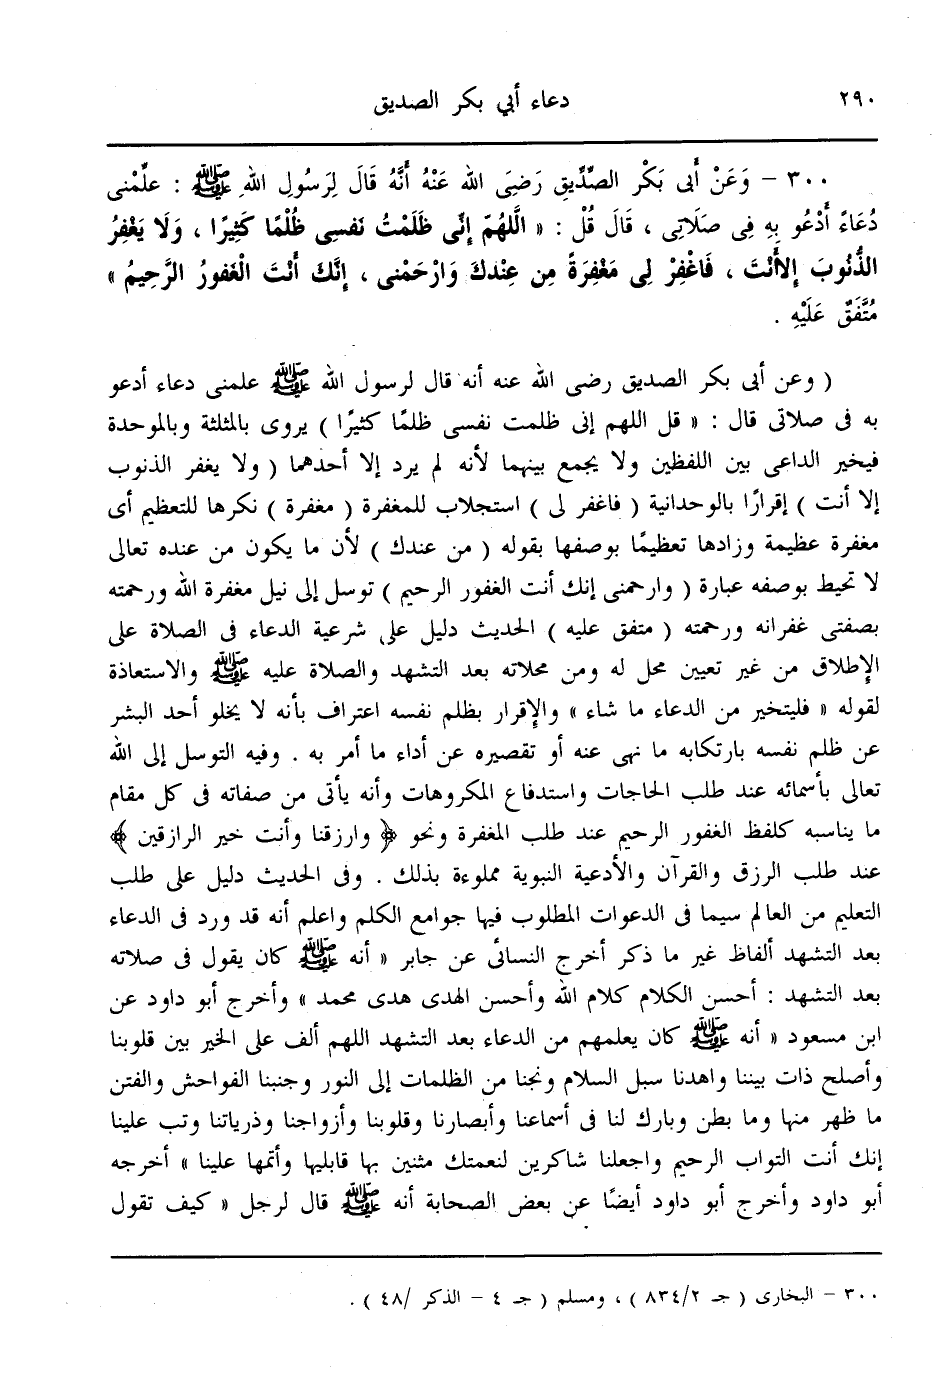 ٢٩٠
دعاء أبي بكر الصديق
٣٠٠ - وَعَنْ أَبِى بَكْر الصِّدِّيقِ رَضِىَ الله عَنْهُ أَنَّهُ قَالَ لِرَسُولِ اللهِ ﷺ : علِّمْنى
دُعَاءً أَدْعُو بِهِ فِى صَلَاتِى ، قَالَ قُلْ : « الَّلهُمّ إنِّى ظَلَمْتُ نَفسِى ظُلْمًا كَثِيرًا ، وَلَا يَغْفِرُ
الذُّنُوبَ إلاأَنْتَ ، فَاغْفِرْ لِى مَغْفِرَةً مِن عِنْدكَ وَارْحَمْنى ، إنَّكَ أَنْتَ الْغَفورُ الرَّحِيمُ »
مُتَّفَقٌ عَلَيْهِ .
( وعن أبى بكر الصديق رضى الله عنه أنه قال لرسول الله ﷺ علمنى دعاء أدعو
به فى صلاتى قال : « قل اللهم إنى ظلمت نفسى ظلمًا كثيرًا ) يروى بالمثلثة وبالموحدة
فيخير الداعى بين اللفظين ولا يجمع بينهما لأنه لم يرد إلا أحدهما ( ولا يغفر الذنوب
إلا أنت ) إقرارًا بالوحدانية ( فاغفر لى ) استجلاب للمغفرة ( مغفرة ) نكرها للتعظيم أى
مغفرة عظيمة وزادها تعظيمًا بوصفها بقوله ( من عندك ) لأن ما يكون من عنده تعالى
لا تحيط بوصفه عبارة ( وارحمنى إنك أنت الغفور الرحيم ) توسل إلى نيل مغفرة الله ورحمته
بصفتى غفرانه ورحمته ( متفق عليه ) الحديث دليل على شرعية الدعاء فى الصلاة على
الإطلاق من غير تعيين محل له ومن محلاته بعد التشهد والصلاة عليه ﷺ والاستعاذة
لقوله « فليتخير من الدعاء ما شاء » والإقرار بظلم نفسه اعتراف بأنه لا يخلو أحد البشر
عن ظلم نفسه بارتكابه ما نهى عنه أو تقصيره عن أداء ما أمر به . وفيه التوسل إلى الله
تعالى بأسمائه عند طلب الحاجات واستدفاع المكروهات وأنه يأتى من صفاته فى كل مقام
ما يناسبه كلفظ الغفور الرحيم عند طلب المغفرة ونحو ﴿ وارزقنا وأنت خير الرازقين ﴾
عند طلب الرزق والقرآن والأدعية النبوية مملوءة بذلك . وفى الحديث دليل على طلب
التعليم من العالم سيما فى الدعوات المطلوب فيها جوامع الكلم واعلم أنه قد ورد فى الدعاء
بعد التشهد ألفاظ غير ما ذكر أخرج النسائى عن جابر « أنه ﷺ كان يقول فى صلاته
بعد التشهد : أحسن الكلام كلام الله وأحسن الهدى هدى محمد » وأخرج أبو داود عن
ابن مسعود « أنه ﷺ كان يعلمهم من الدعاء بعد التشهد اللهم ألف على الخير بين قلوبنا
وأصلح ذات بيننا واهدنا سبل السلام ونجنا من الظلمات إلى النور وجنبنا الفواحش والفتن
ما ظهر منها وما بطن وبارك لنا فى أسماعنا وأبصارنا وقلوبنا وأزواجنا وذرياتنا وتب علينا
إنك أنت التواب الرحيم واجعلنا شاكرين لنعمتك مثنين بها قابليها وأتمها علينا » أخرجه
أبو داود وأخرج أبو داود أيضًا عن بعض الصحابة أنه ﷺ قال لرجل « كيف تقول
٣٠٠ - البخارى ( جـ ٨٣٤/٢ ) ، ومسلم ( جـ ٤ - الذكر /٤٨ ) .